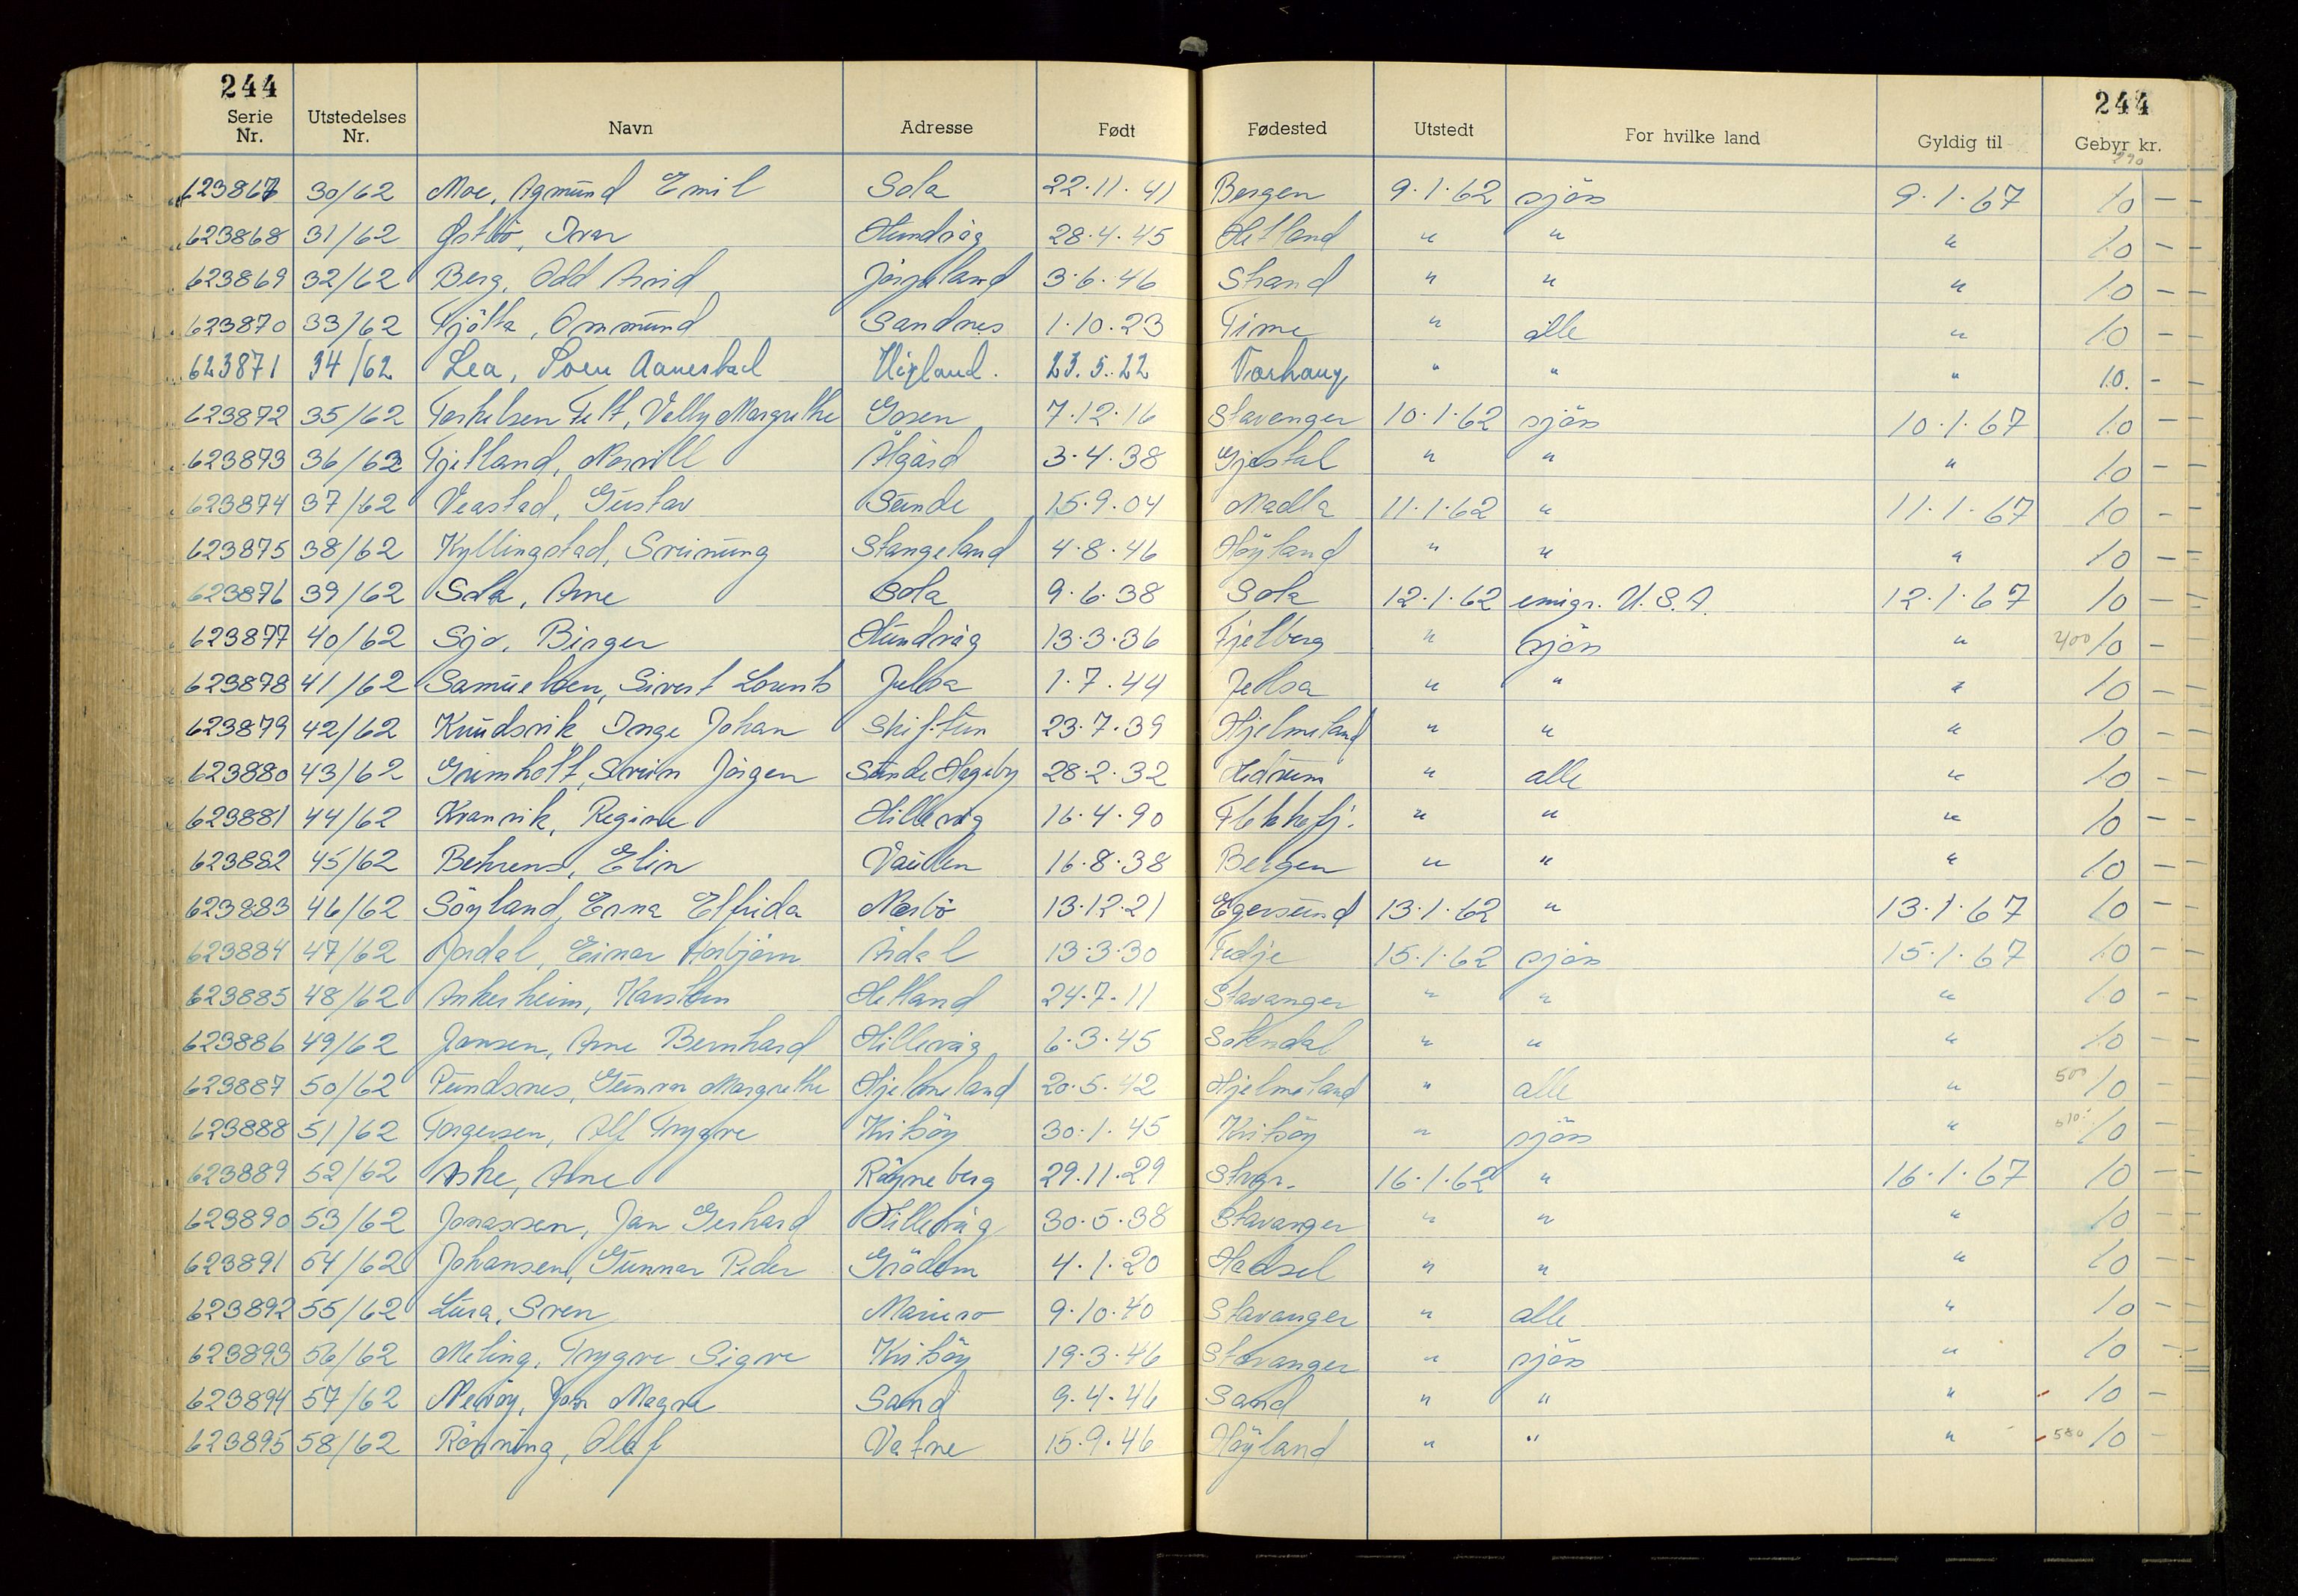 244 244
Serie Nr. Utstedelses Nr. Navn Adresse Født Fødested Utstedt For hvilke land Gyldig til Gebyr kr.
290
623867 30/62 Moe, Agmund Emil Sola 22.11.41 Bergen 9.1.62 sjöss 9.1.67 10 — —
623868 31/62 Østbö, Ivar Hundvåg 28.4.45 Hetland " " " 10 — —
623869 32/62 Berg, Odd Arvid Jörpeland 3.6.46 Strand " " " 10 — —
623870 33/62 Fjölta, Ommund Sandnes 1.10.23 Time " alle " 10 — —
623871 34/62 Lea, Sven Aanestad 23.5.22 Varhaug " " " 10. — —
623872 35/62 Torkelsen Felt, Velly Margrethe Gosen 7.12.16 Stavanger 10.1.62 sjöss 10.1.67 10 — —
623873 36/62 Fjelland, Norvill Ålgård 3.4.38 Gjestal " " " 10 — —
623874 37/62 Veastad, Gustav Sunde 15.9.04 Madla 11.1.62 " 11.1.67 10 — —
623875 38/62 Kyllingstad, Sveinung Stangeland 4.8.46 Höyland " " " 10 — —
623876 39/62 Sola, Arne Sola 9.6.38 Sola 12.1.62 emigr. U.S.A. 12.1.67 10 — —
623877 40/62 Sjo, Birger Hundvåg 13.3.36 Fjelberg " sjöss " 400 10 —
623878 41/62 Samuelsen, Sivert Lorents Jelsa 1.7.44 Jelsa " " " 10 — —
623879 42/62 Knudsvik Inge Johan Skiftun 23.7.39 Hjelmeland " " " 10 — —
623880 43/62 Grimholt, Svein Jörgen Sunde Hageby 28.2.32 Hedrum " alle " 10 — —
623881 44/62 Kvanvik, Regine Hillevåg 16.4.90 Flekkefj. " " " 10 — —
623882 45/62 Behrens, Elin Vaulen 16.8.38 Bergen " " " 10 — —
623883 46/62 Söyland, Erna Elfrida Nærbö 13.12.21 Egersund 13.1.62 " 13.1.67 10 — —
623884 47/62 Årdal, Einar Asbjörn Årdal 13.3.30 Fedje 15.1.62 sjöss 15.1.67 10 — —
623885 48/62 Ankerheim, Karsten Hetland 24.7.11 Stavanger " " " 10 — —
623886 49/62 Jansen, Arne Bernhard Hillevåg 6.3.45 Sokndal " " " 10 — —
623887 50/62 Pundsnes, Gunvor Margrethe Hjelmeland 20.5.42 Hjelmeland " alle " 500 10 —
623888 51/62 Torgersen, Alf Trygve Kvitsöy 30.1.45 Kvitsöy " sjöss " 510 10 —
623889 52/62 Aske, Arne Röyneberg 29.11.29 Stvgr. 16.1.62 " 16.1.67 10 — —
623890 53/62 Jonassen, Jan Gerhard Hillevåg 30.5.38 Stavanger " " " 10 — —
623891 54/62 Johansen, Gunnar Peder Grödem 4.1.20 Hadsel " " " 10 — —
623892 55/62 Lura, Sven Mariero 9.10.40 Stavanger " alle " 10 — —
623893 56/62 Meling, Trygve Sigve Kvitsöy 19.3.46 Stavanger " sjöss " 10 — —
623894 57/62 Magne Sand 9.4.46 Sand " " " 10 —
623895 58/62 Rönning, Olaf Vatne 15.9.46 Höyland " " " 580 10 —